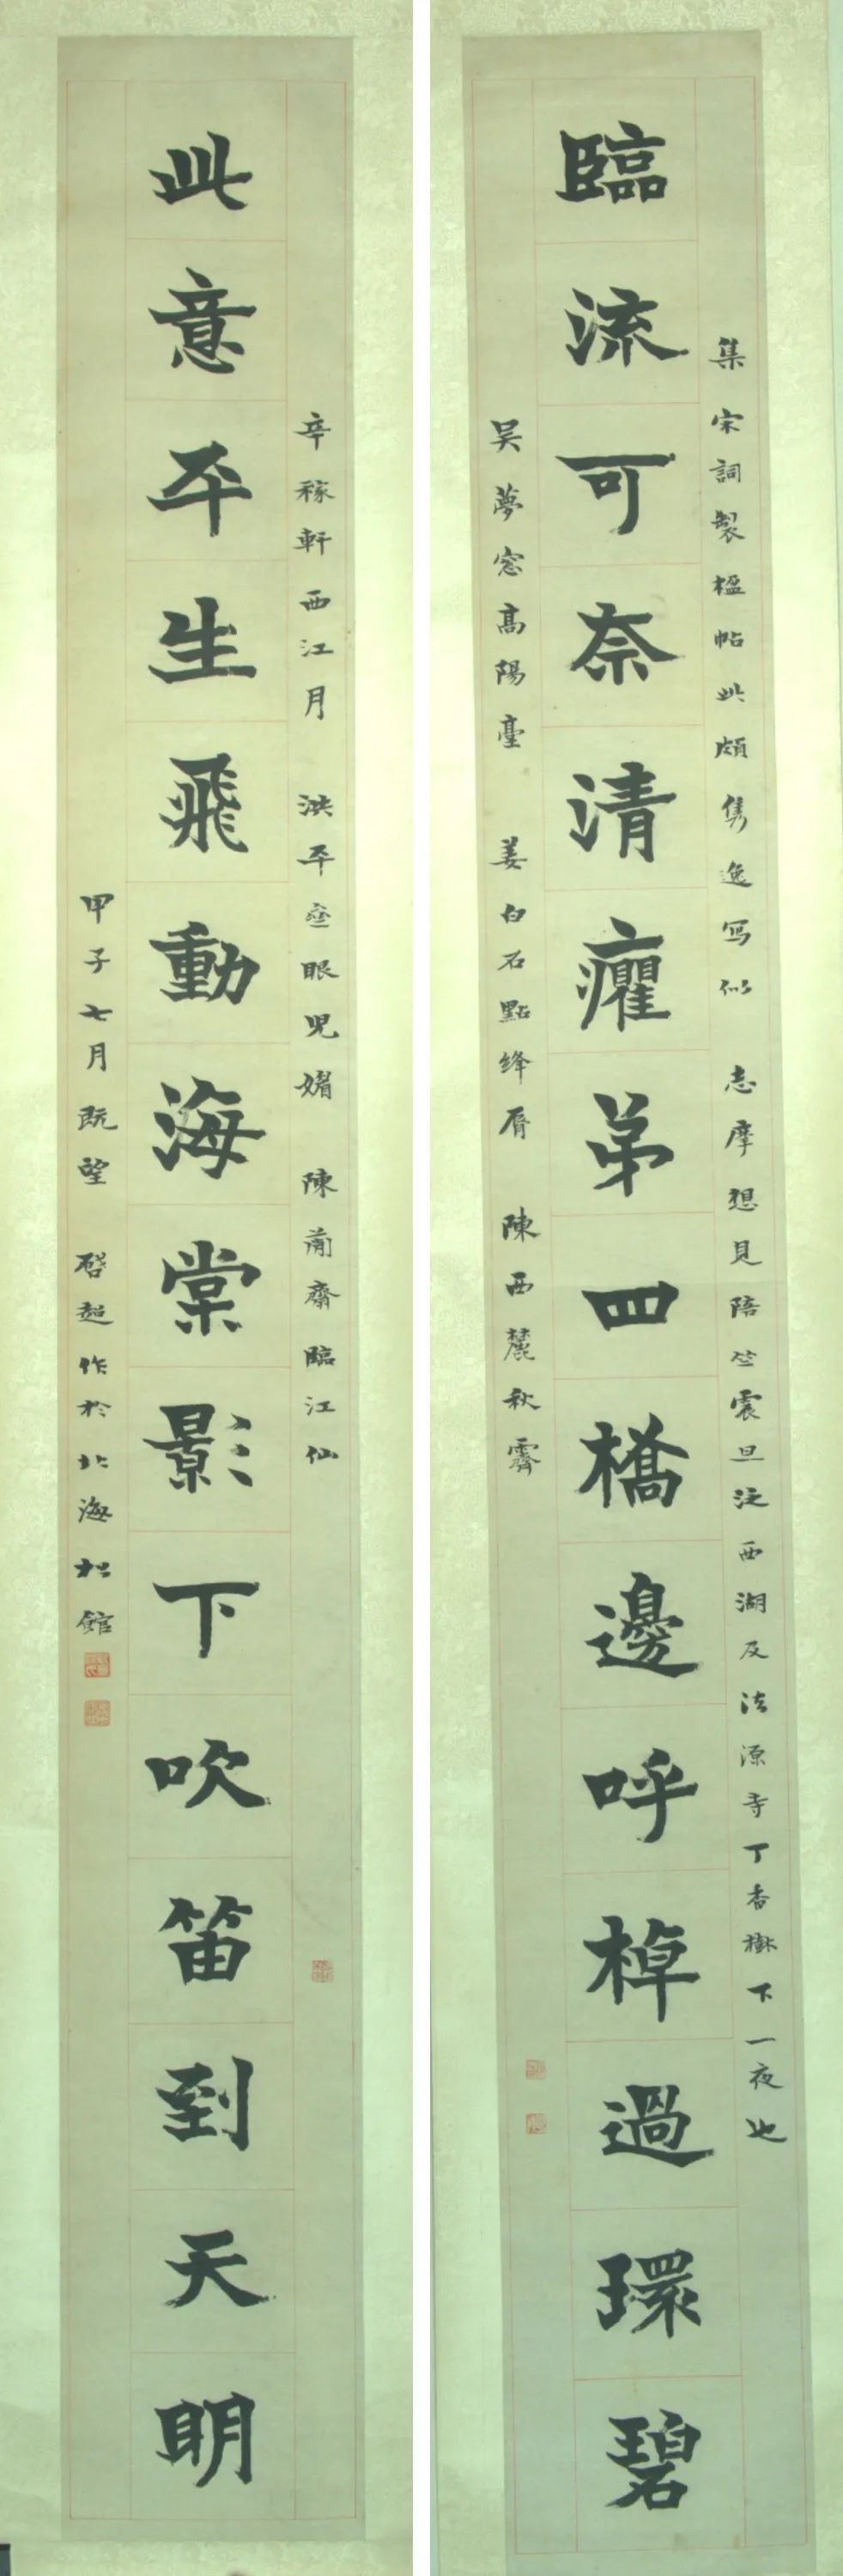 集宋詞製楹帖此頗雋逸写似 志摩想見陪竺震旦泛西湖及法源寺丁香樹下一夜也
臨流可奈清癯弟四橋邊呼棹過環碧
吴夢窓高陽臺 姜白石點絳脣 陳西麓秋霽
辛稼軒西江月 洪平斎眼児媚 陳簡齋臨江仙
此意平生飛動海棠影下吹笛到天明
甲子七月既望 啓超作於北海松館